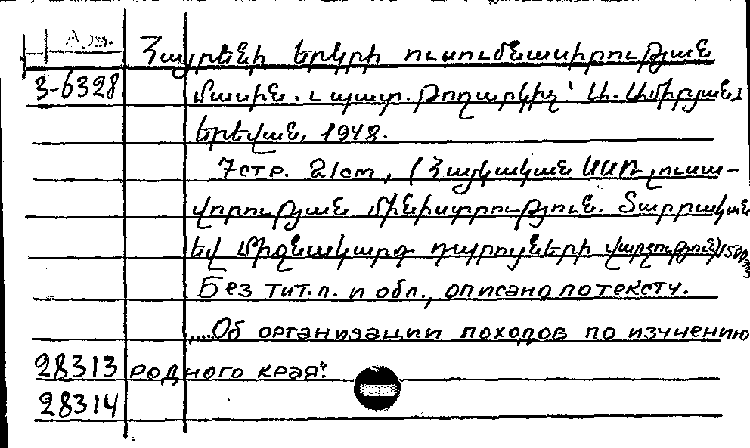 Арм.
Հայրենի երկրի ուսումնասիրության
3-6328 մասին. պատ. թողարկիչ՝ Ա. Ամիրյան
Երևան, 1948.
7 стр. 21 cm, (Հայկական ՍՍՌ լուսա-
վորության մինիստրություն. Տարրական
եվ միջնակարգ դպրոցների վարչություն)
Без тит. л. и обл., описано по тексту.
„Об организации походов по изучению
28313 родного края“.
28314